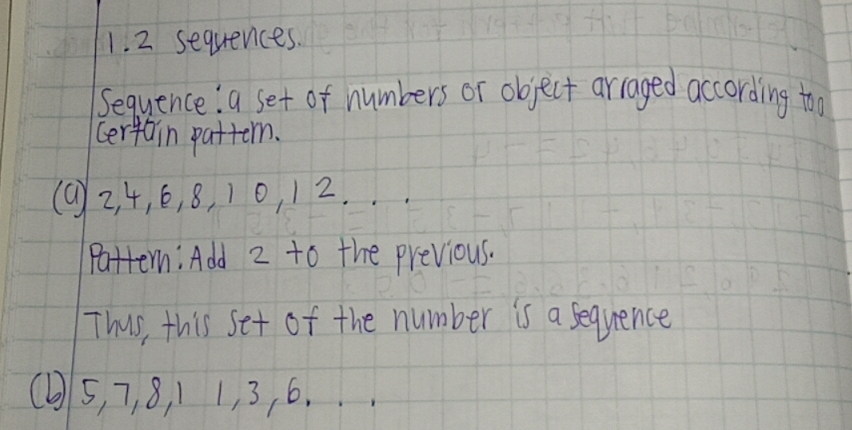 1.2 sequences.
Sequence : a set of numbers or object arraged according to a
certain pattern.
(a) 2,4,6,8,10,12. . .
Pattern : Add 2 to the previous.
Thus, this set of the number is a sequence
(b) 5,7,8,11,3,6. . .